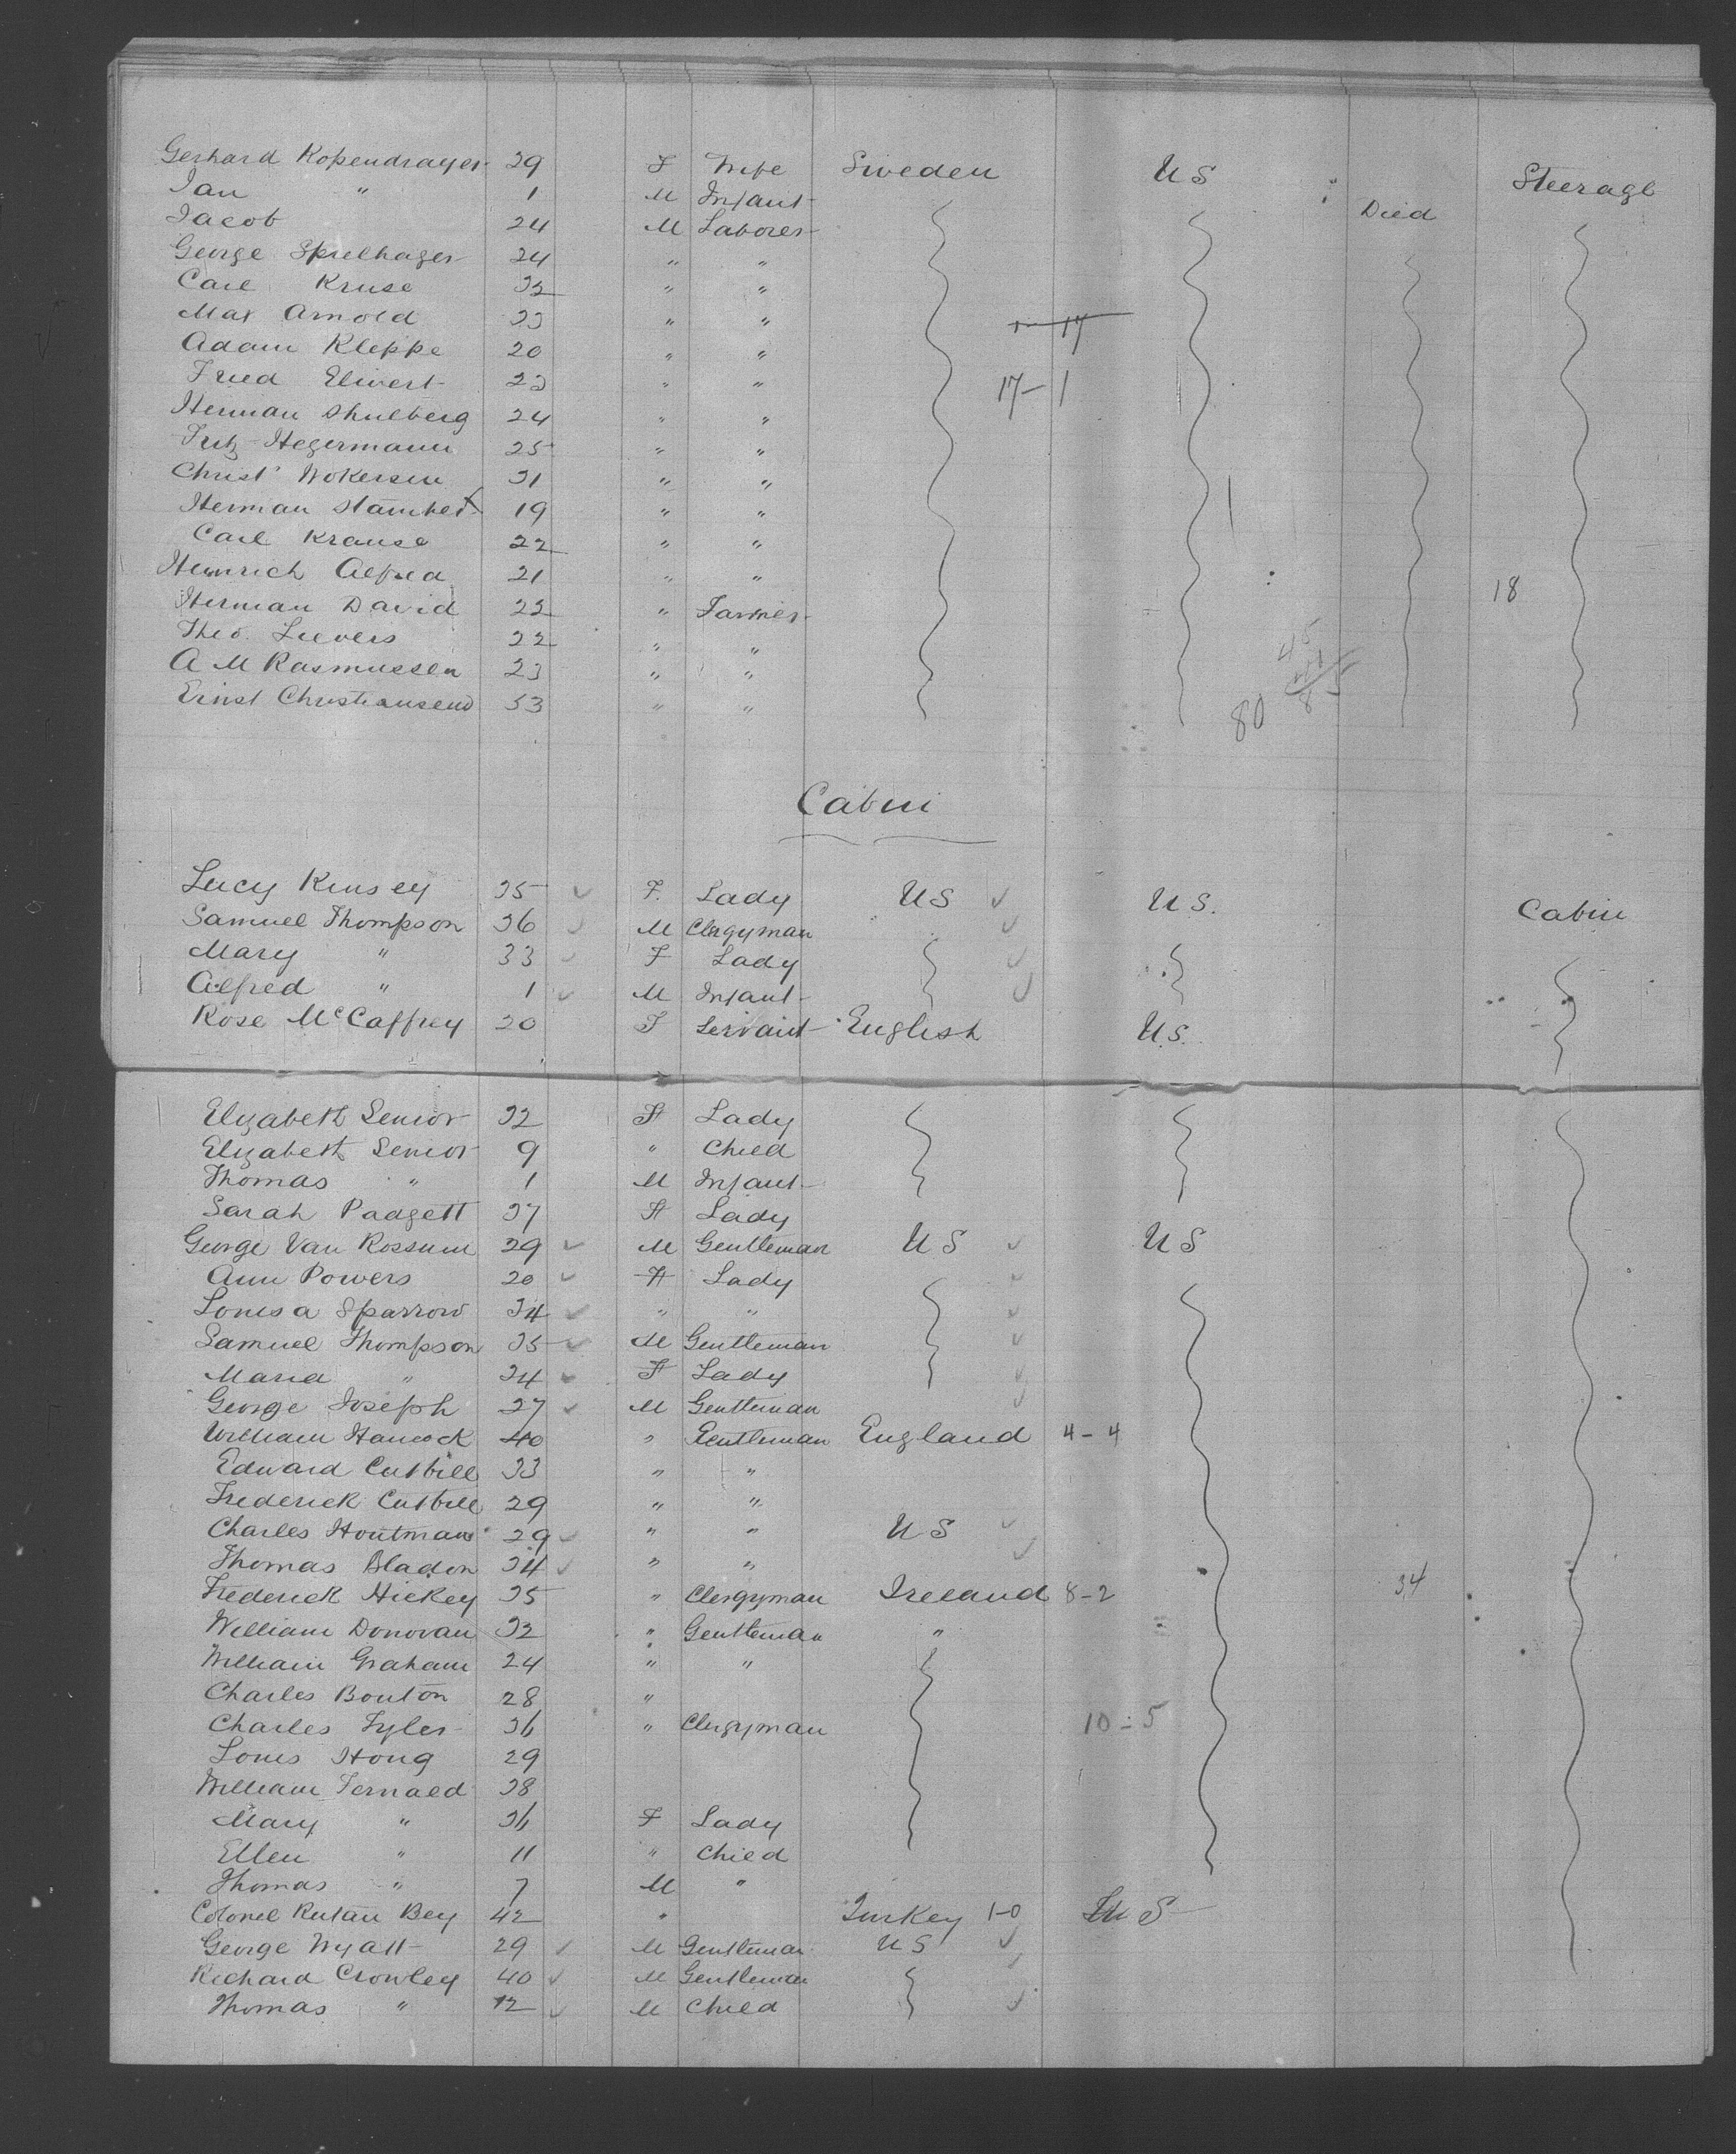 Gerhard Kopendrayer 29 F Wife Sweden US Steerage
Jan " 1 M Infant Died
Jacob 24 M Laborer
George Spielhager 24 " "
Carl Kruse 32 " "
Max Arnold 23 " " 17
Adam Kleppe 20 " "
Fried Eliwert 22 " " 17-1
Herman Shulberg 24 " "
Fritz Hegermann 25 " "
Christ' Wokersen 31 " "
Herman 19 " "
Carl Krause 22 " "
Heinrich Alfred 21 " "
Herman David 22 " Farmer 18
Theo. Lievers 22 " "
A M Rasmussen 23 " " 45
Ernst Christiansend 53 " " 80 85
Cabin
Lucy Kinsey 35 F. Lady US U S. Cabin
Samuel Thompson 36 M Clergyman
Mary " 33 F Lady
Alfred " 1 M Infant
Rose McCaffrey 20 F Servant English U.S.
Elizabeth Senior 32 F Lady
Elizabeth Senior 9 " Child
Thomas " 1 M Infant
Sarah Padgett 37 F Lady
George Van Rossum 29 M Gentleman US US
Ann Powers 20 F Lady
Louisa Sparrow 34 " "
Samuel Thompson 35 M Gentleman
Maria " 34 F Lady
George Joseph 27 M Gentleman
William Hancock 40 " Gentleman England 4-4
Edward Cutbill 33 " "
Frederick Cutbill 29 " "
Charles Houtman 29 " " US
Thomas Bladon 34 " "
Frederick Hickey 35 " Clergyman Ireland 8-2 34
William Donovan 32 " Gentleman "
William Graham 24 " "
Charles Bouton 28 "
Charles Tyler 36 " Clergyman 10-5
Louis Houg 29
William Fernald 38
Mary " 36 F Lady
Ellen " 11 " Child
Thomas " 7 M "
Colonel Rutau Bey 42 " Turkey 1-0 U S
George Wyatt 29 M Gentleman US
Richard Crowley 40 M Gentleman
Thomas " 12 M Child